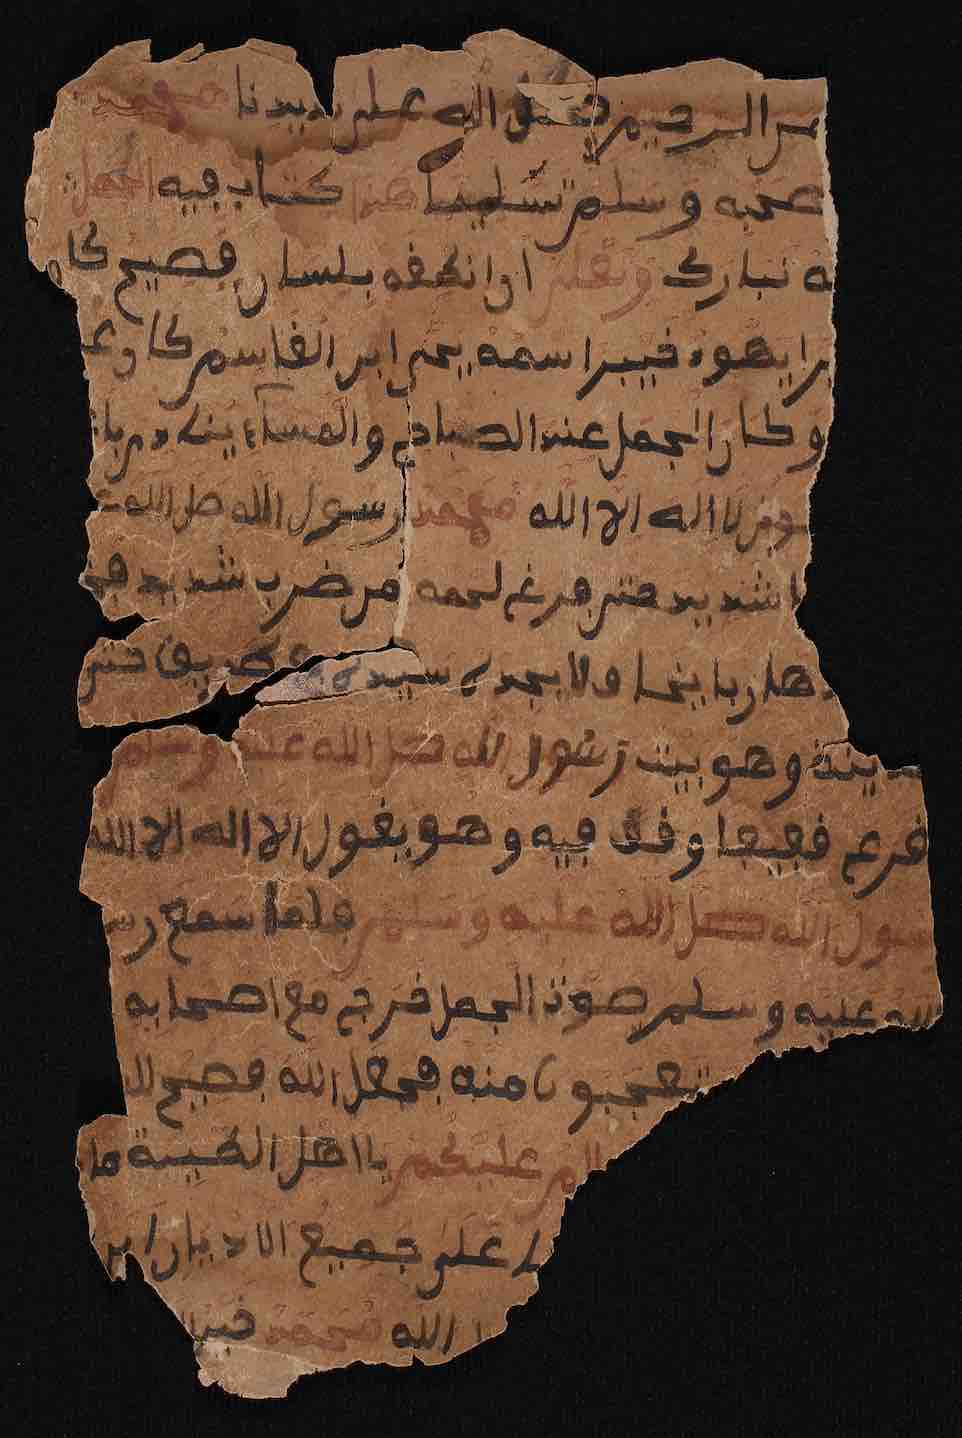 من الرحيم صل الله على سيدنا محمد
صحبه وسلم تسليما هذا كتاب فيه الجمل
ه تبارك وتعلى ان انطقه بلسان فصيح كا
من ايهود خيبر اسمه يحي ابن القاسم كان
وكان الجمل عند الصباح والمساء ينادي يا
لا اله الا الله محمد رسول الله صل الله
شديد حتى لحمه من ضرب شديد
هاربا ينحا ولا يجد سبيل طريق حتى
مدينة وهو بيت رسول الله صل الله عليه وسلم
وقف فيه وهو يقول الا اله الا الله
سول الله صل الله عليه وسلم فلما سمع رس
الله عليه وسلم صوت الجمل خرج مع اصحابه
يتعجبون منه فجعل الله فصيح لل
لام عليكم يا اهل الطيبة ما
على جميع الاديان
الله محمد خير